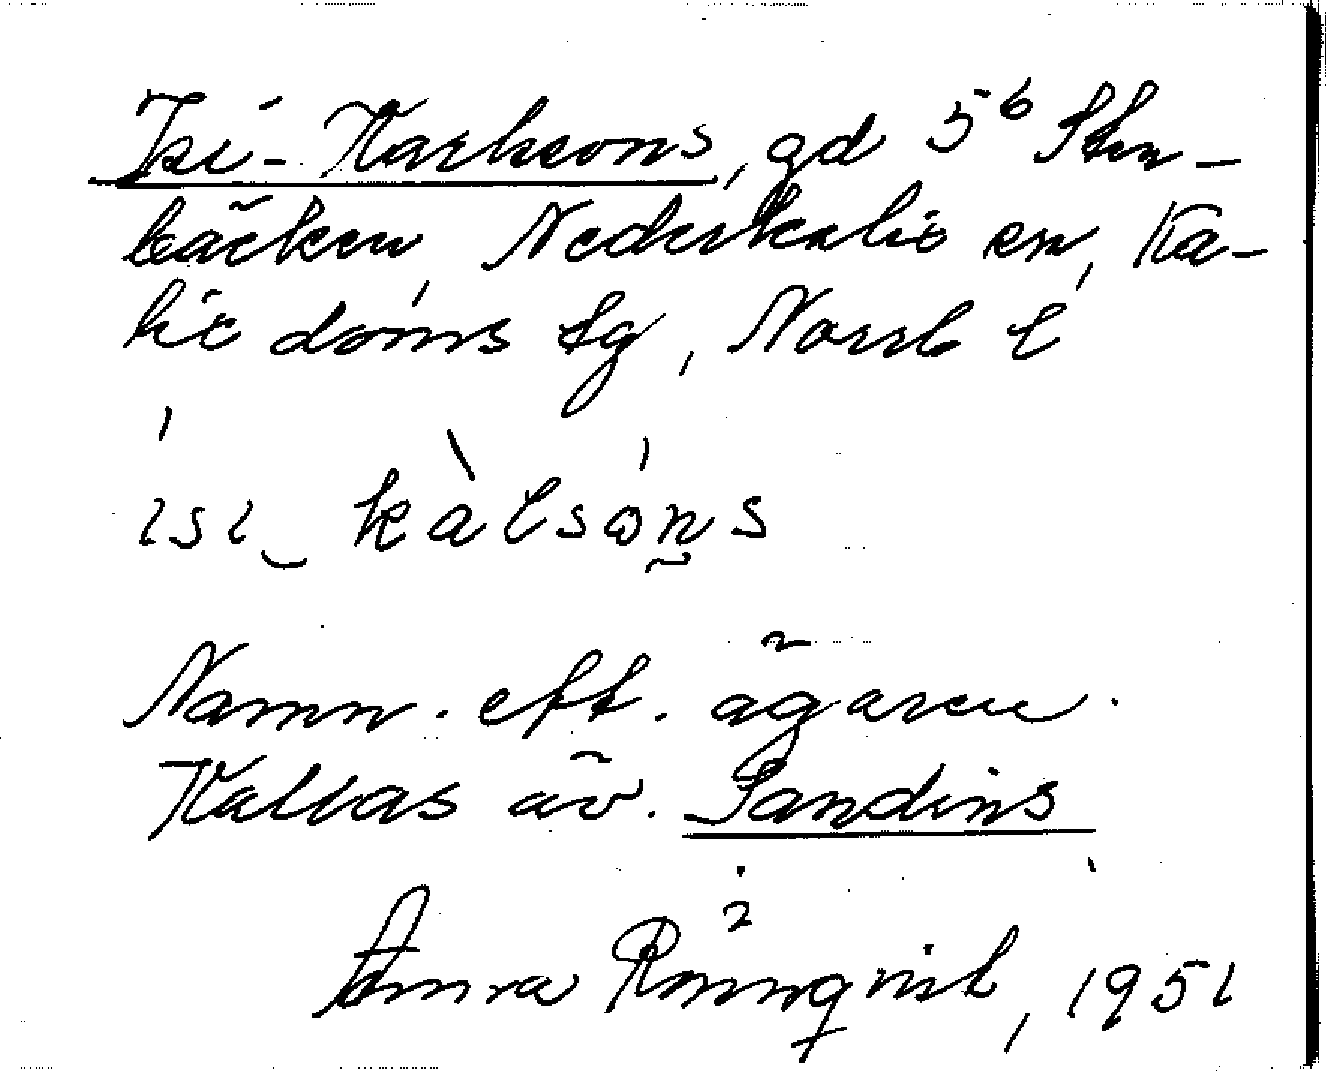 Isi-Karlsons, gd 5⁶ Sten-
bäcken, Nederkalix sn, Ka-
lix doms sg, Norrb l
ísi‿ kàlsóns
Namn. eft. ägaren.
Kallas äv. Sandins
Anna Rönnqvist, 1951